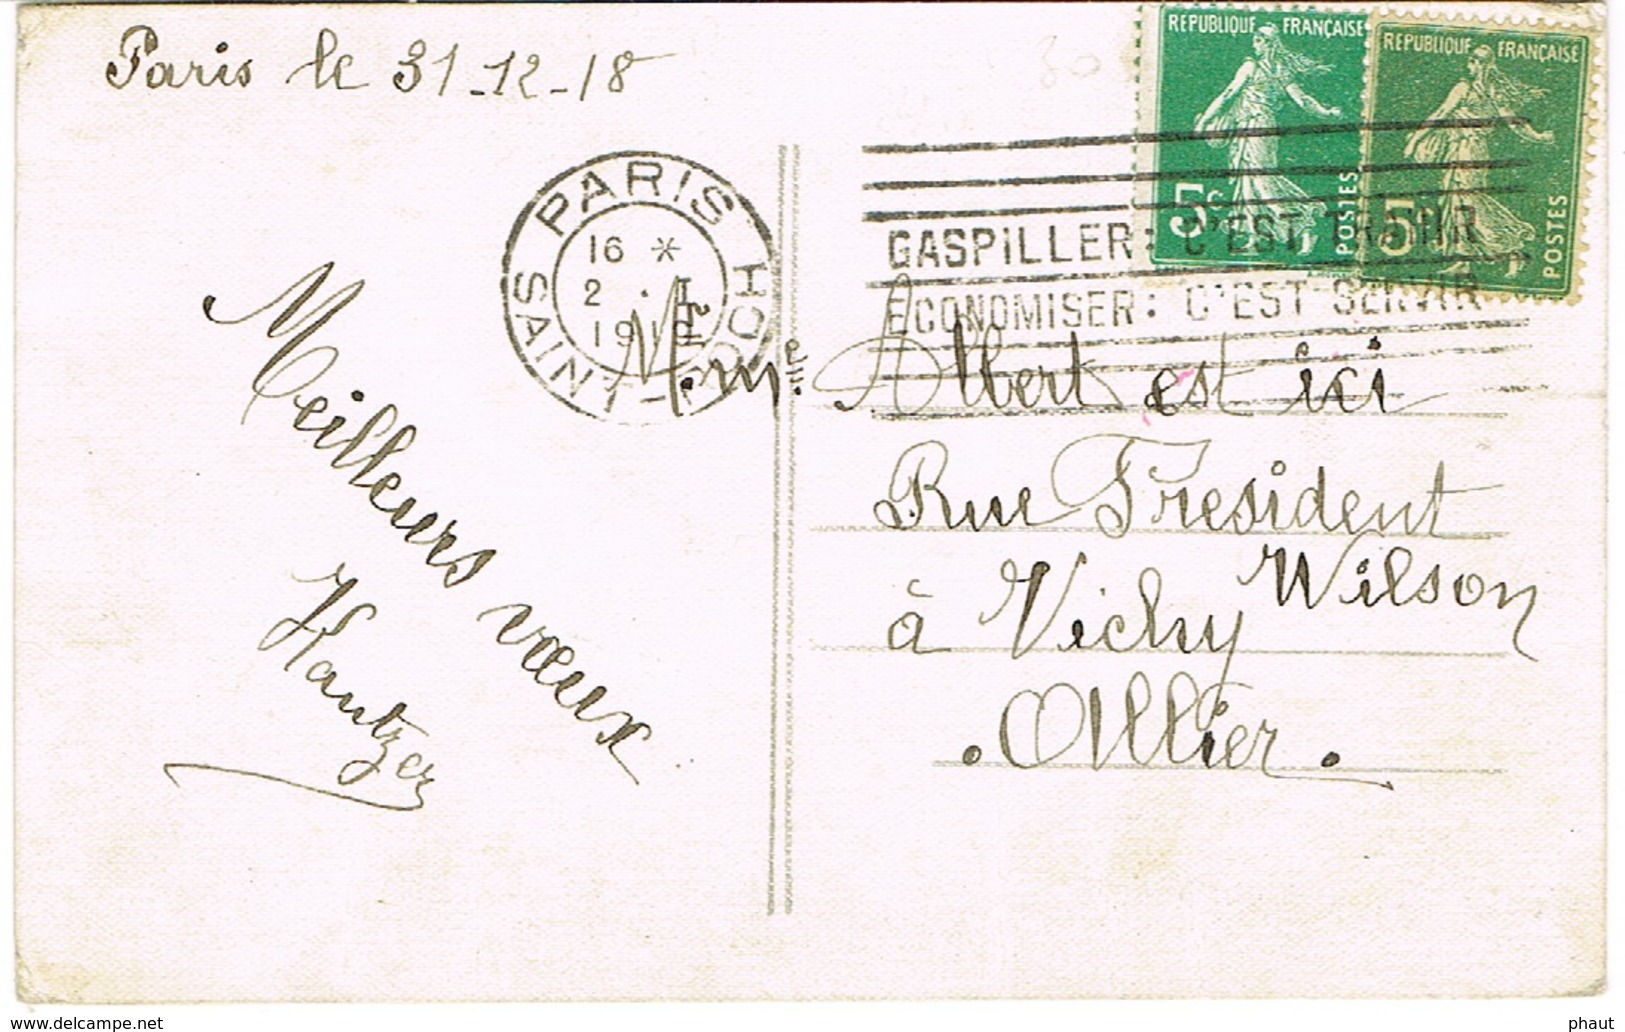 Paris le 31-12-18
REPUBLIQUE FRANÇAISE
5c
POSTES
REPUBLIQUE FRANÇAISE
5
POSTES
PARIS
SAINT-HONORÉ
16 *
2 . I
1919
GASPILLER: C'EST TRAHIR
ECONOMISER: C'EST SERVIR
Meilleurs vœux
Albert est ici
Rue President
Wilson
à Vichy
. Allier .
www.delcampe.net
phaut